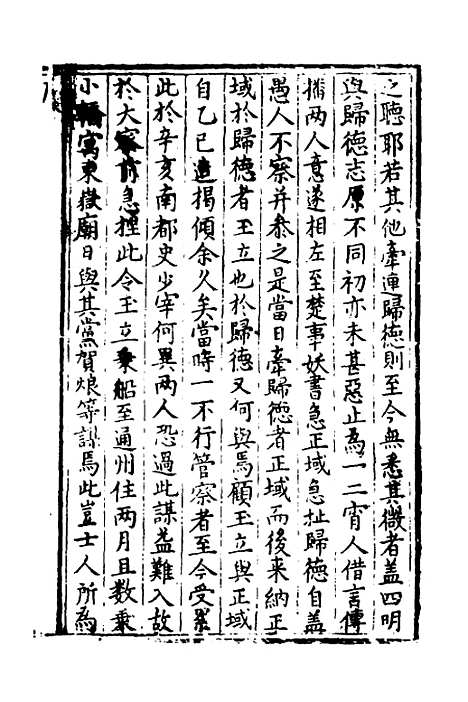 之聽耶若其他牽連歸德則至今無悉其微者盖四明
與歸德志原不同初亦未甚惡止為一二宵人借言傳
搆两人意遂相左至楚事妖書急正域急扯歸德自盖
愚人不察并恭之是當日牽歸德者正域而後来納正
域於歸德者王立也於歸德又何與焉顧王立與正域
自乙巳遣揭傾余久矣當時一不行管察者至今受累
此於辛亥南都史少宰何異两人恐過此謀益難入故
於大察前急捏此令王立乗船至通州住两月且数乗
小轎寓東嶽廟日與其黨賀烺等謀焉此豈士人所為